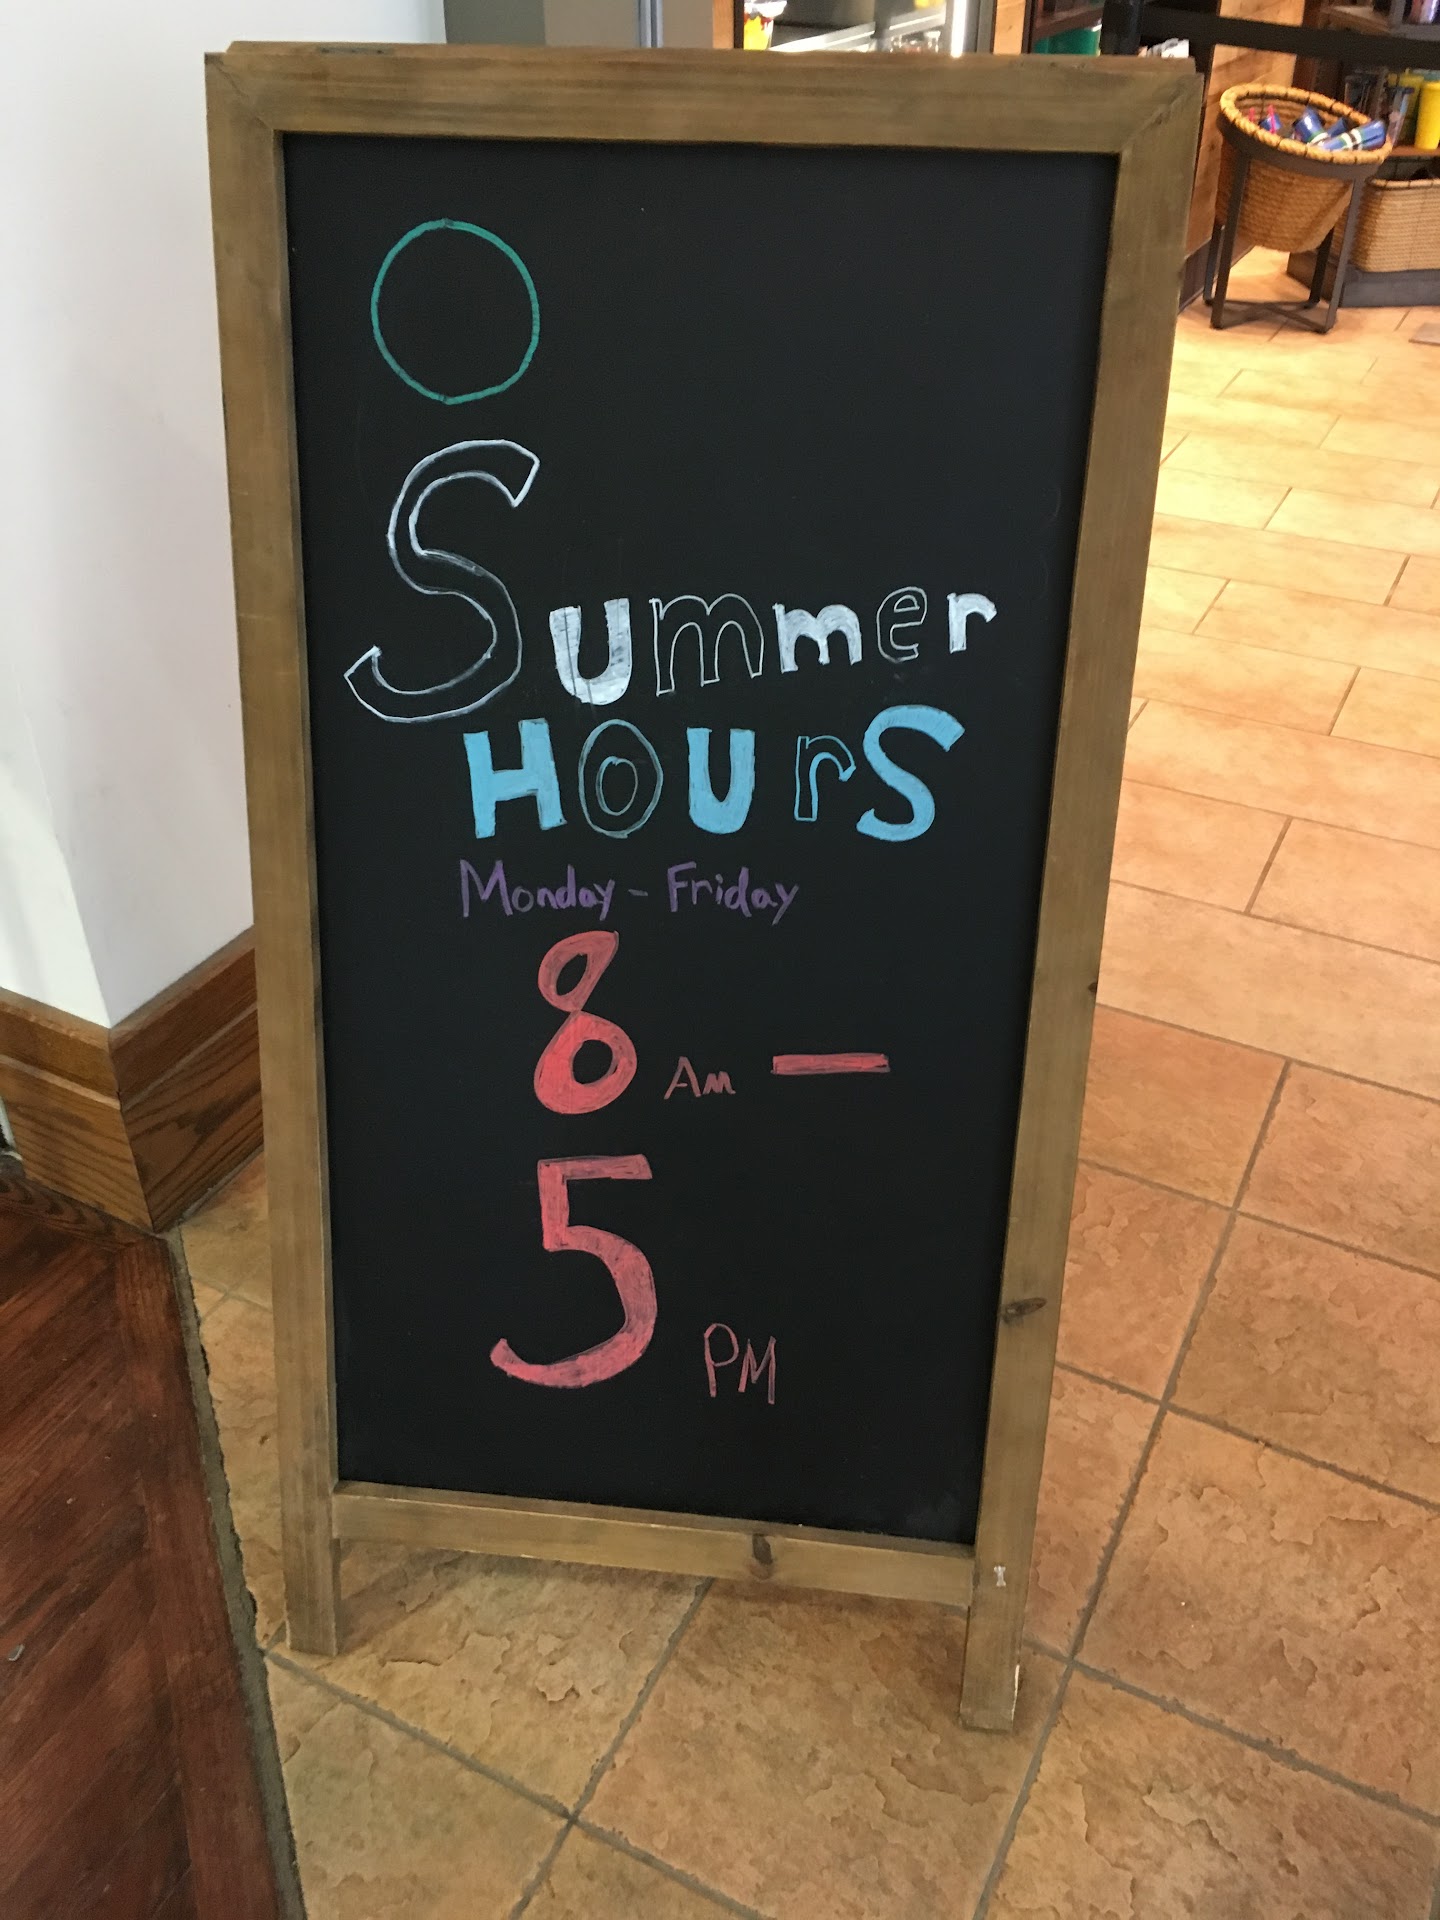 Summer
HOUrS
Monday - Friday
8 AM —
5 PM